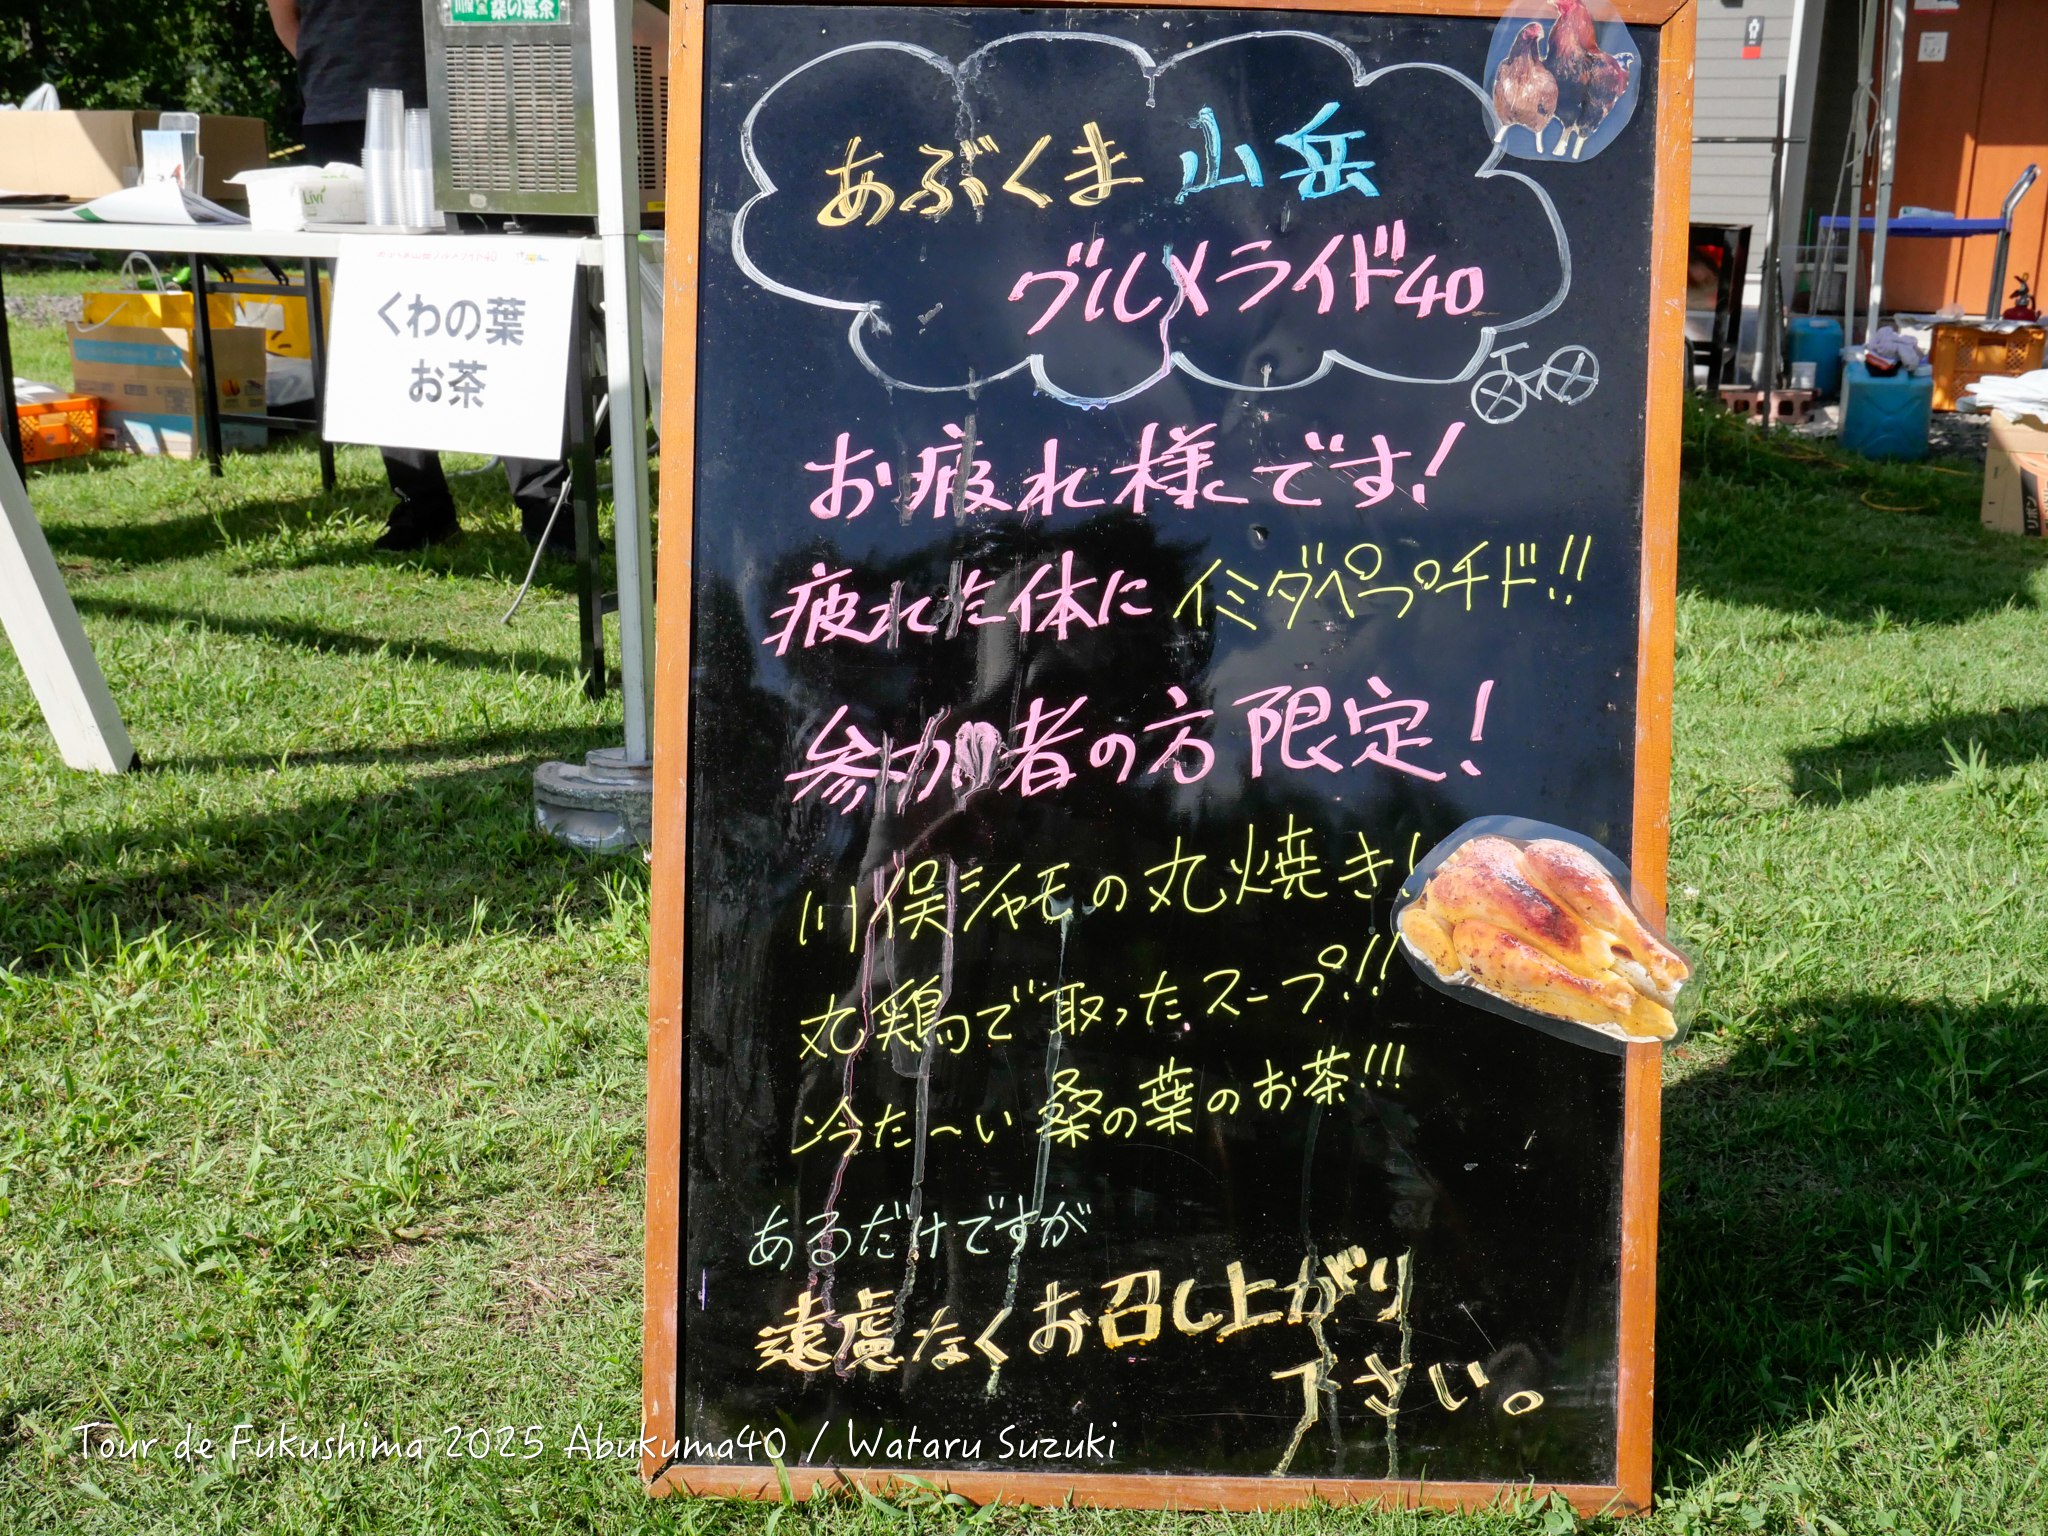 桑の葉茶
Livi
くわの葉
お茶
あぶくま山岳
グルメライド40
お疲れ様です!
疲れた体にイミダペプチド!!
参加者の方限定!
川俣シャモの丸焼き!
丸鶏で取ったスープ!!
冷た〜い桑の葉のお茶!!!
あるだけですが
遠慮なくお召し上がり
下さい。
Tour de Fukushima 2025 Abukuma40 / Wataru Suzuki